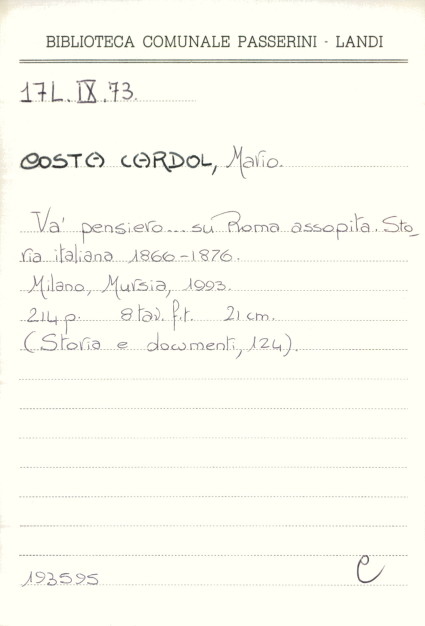 BIBLIOTECA COMUNALE PASSERINI - LANDI
17L.IX.73.
COSTA CARDOL, Mario.
Va' pensiero... su Roma assopita. Sto_
ria italiana 1866-1876.
Milano, Mursia, 1993.
214 p. 8 tav. f.t. 21 cm.
(Storia e documenti, 124).
193595
C